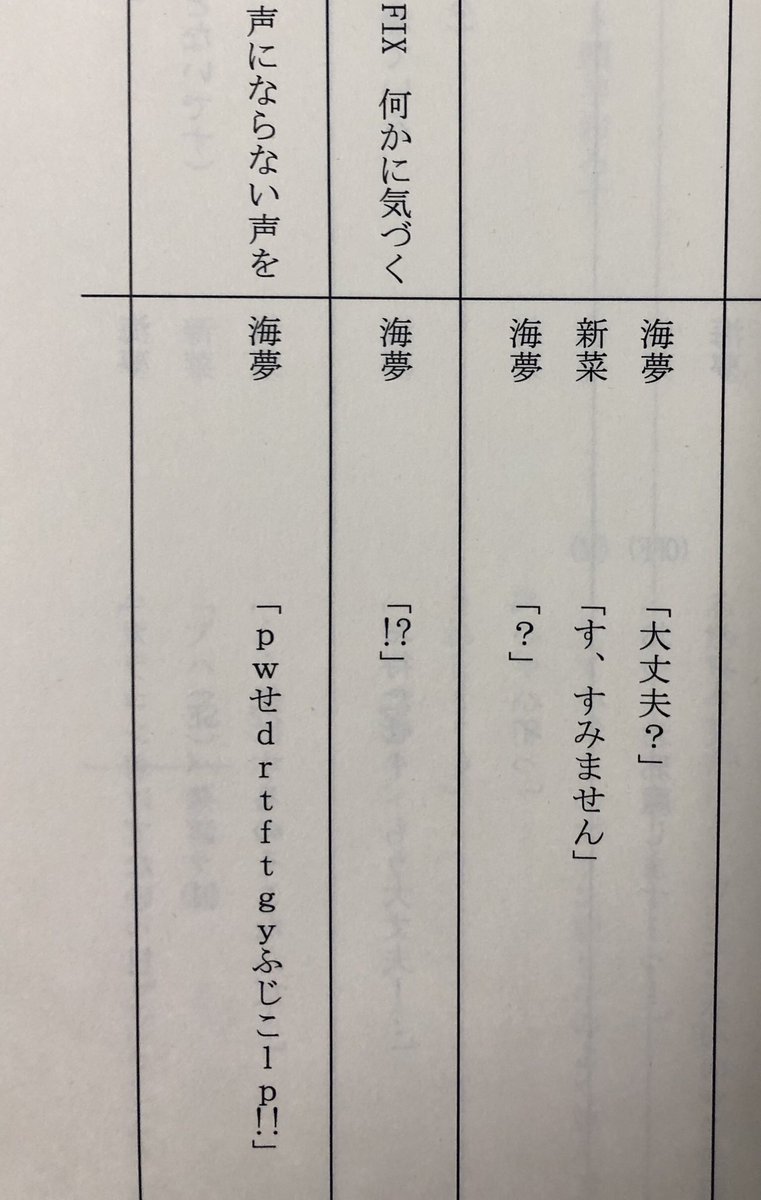 海夢 「大丈夫？」
新菜 「す、すみません」
海夢 「？」
FIX 何かに気づく
海夢 「!?」
声にならない声を
海夢 「ｐｗせｄｒｔｆｔｇｙふじこｌｐ!!」